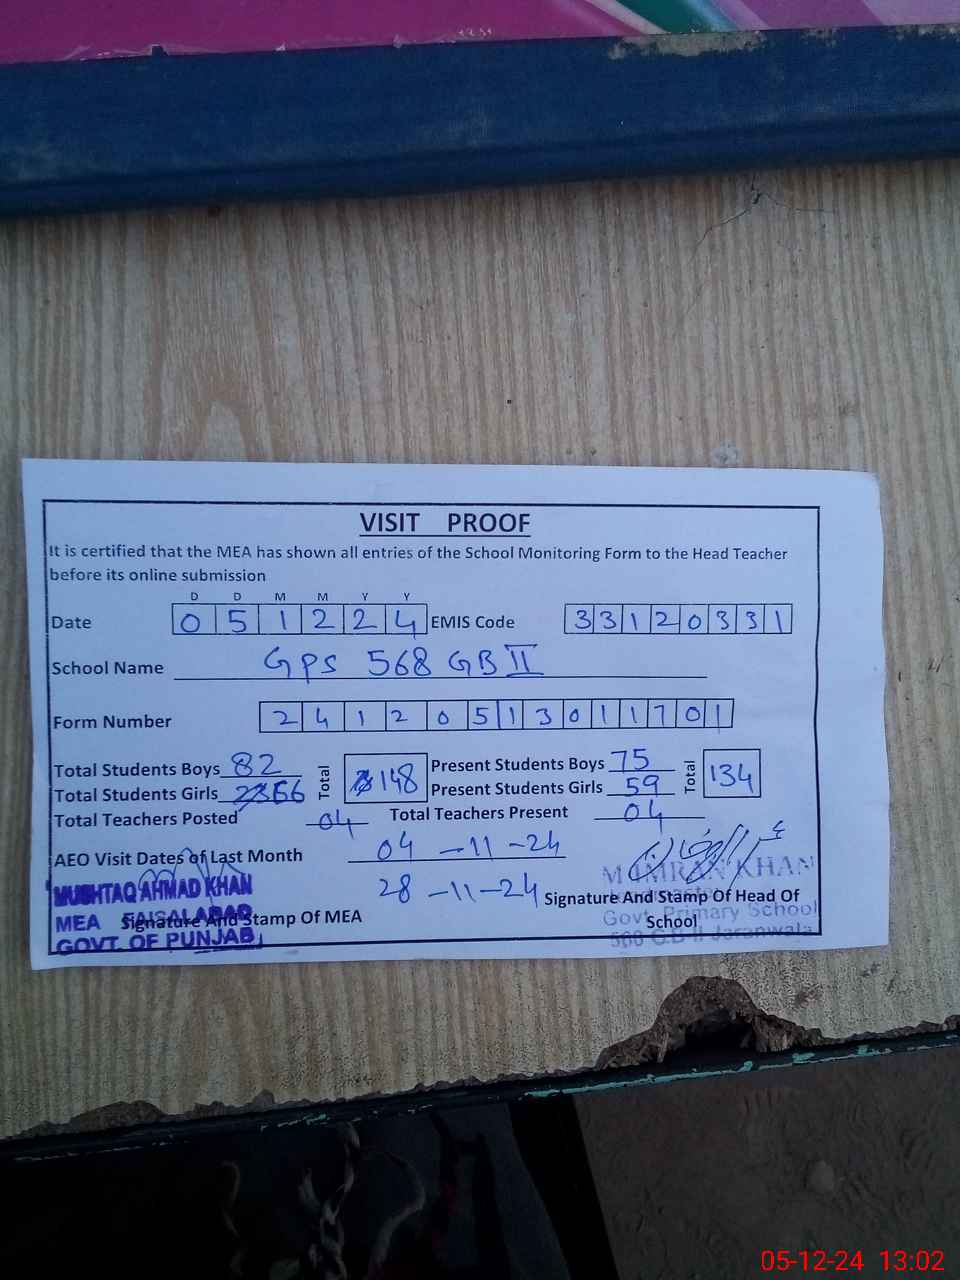 VISIT PROOF
It is certified that the MEA has shown all entries of the School Monitoring Form to the Head Teacher
before its online submission
D D M M Y Y
Date 051224 EMIS Code 33120331
School Name GPS 568 GB II
Form Number 24120513011701
Total Students Boys 82 Total 148 Present Students Boys 75 Total 134
Total Students Girls 66 Present Students Girls 59
Total Teachers Posted 04 Total Teachers Present 04
AEO Visit Dates of Last Month 04-11-24
28-11-24
MUSHTAQ AHMAD KHAN
MEA FAISALABAD
GOVT. OF PUNJAB
Signature And Stamp Of MEA
M IMRAN KHAN
Headmaster
Govt. Primary School
568 G.B II Jaranwala
Signature And Stamp Of Head Of
School
05-12-24 13:02